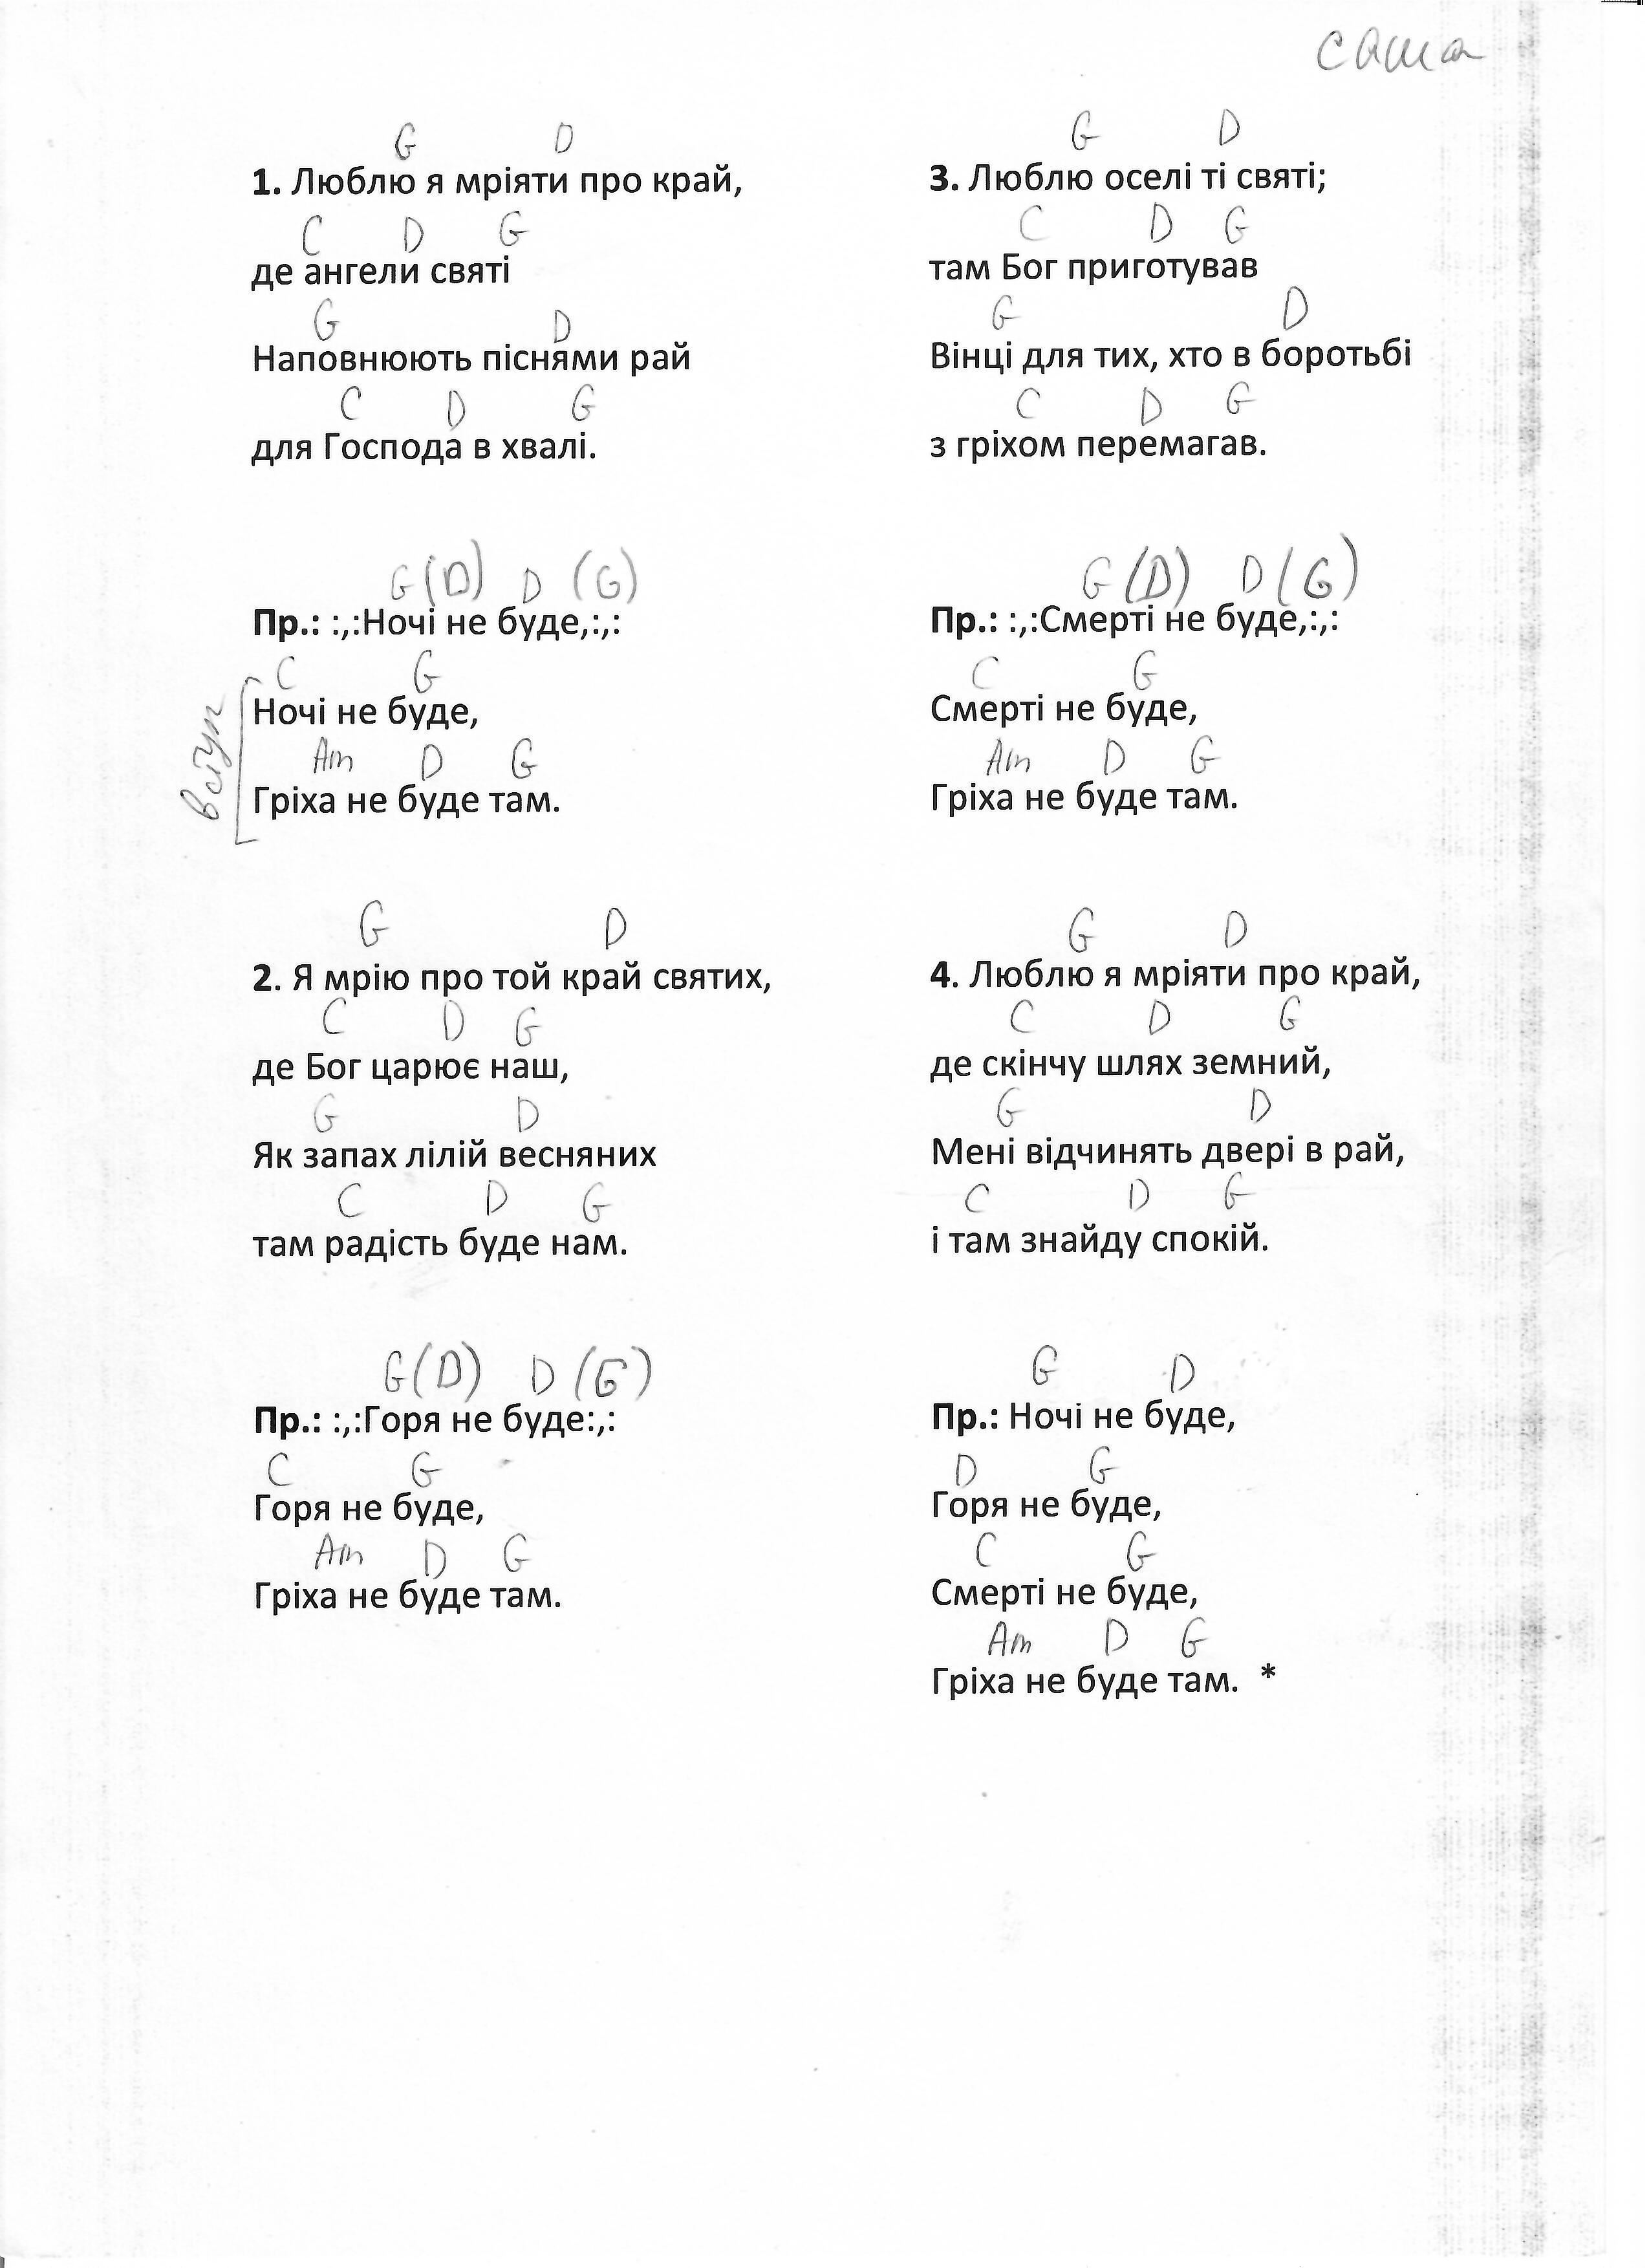 саша
G D
1. Люблю я мріяти про край,
C D G
де ангели святі
G D
Наповнюють піснями рай
C D G
для Господа в хвалі.
G (D) D (G)
Пр.: :,:Ночі не буде,:,:
C G
Ночі не буде,
Am D G
Гріха не буде там.
вступ
G D
2. Я мрію про той край святих,
C D G
де Бог царює наш,
G D
Як запах лілій весняних
C D G
там радість буде нам.
G(D) D (G)
Пр.: :,:Горя не буде:,:
C G
Горя не буде,
Am D G
Гріха не буде там.
G D
3. Люблю оселі ті святі;
C D G
там Бог приготував
G D
Вінці для тих, хто в боротьбі
C D G
з гріхом перемагав.
G (D) D (G)
Пр.: :,:Смерті не буде,:,:
C G
Смерті не буде,
Am D G
Гріха не буде там.
G D
4. Люблю я мріяти про край,
C D G
де скінчу шлях земний,
G D
Мені відчинять двері в рай,
C D G
і там знайду спокій.
G D
Пр.: Ночі не буде,
D G
Горя не буде,
C G
Смерті не буде,
Am D G
Гріха не буде там. *